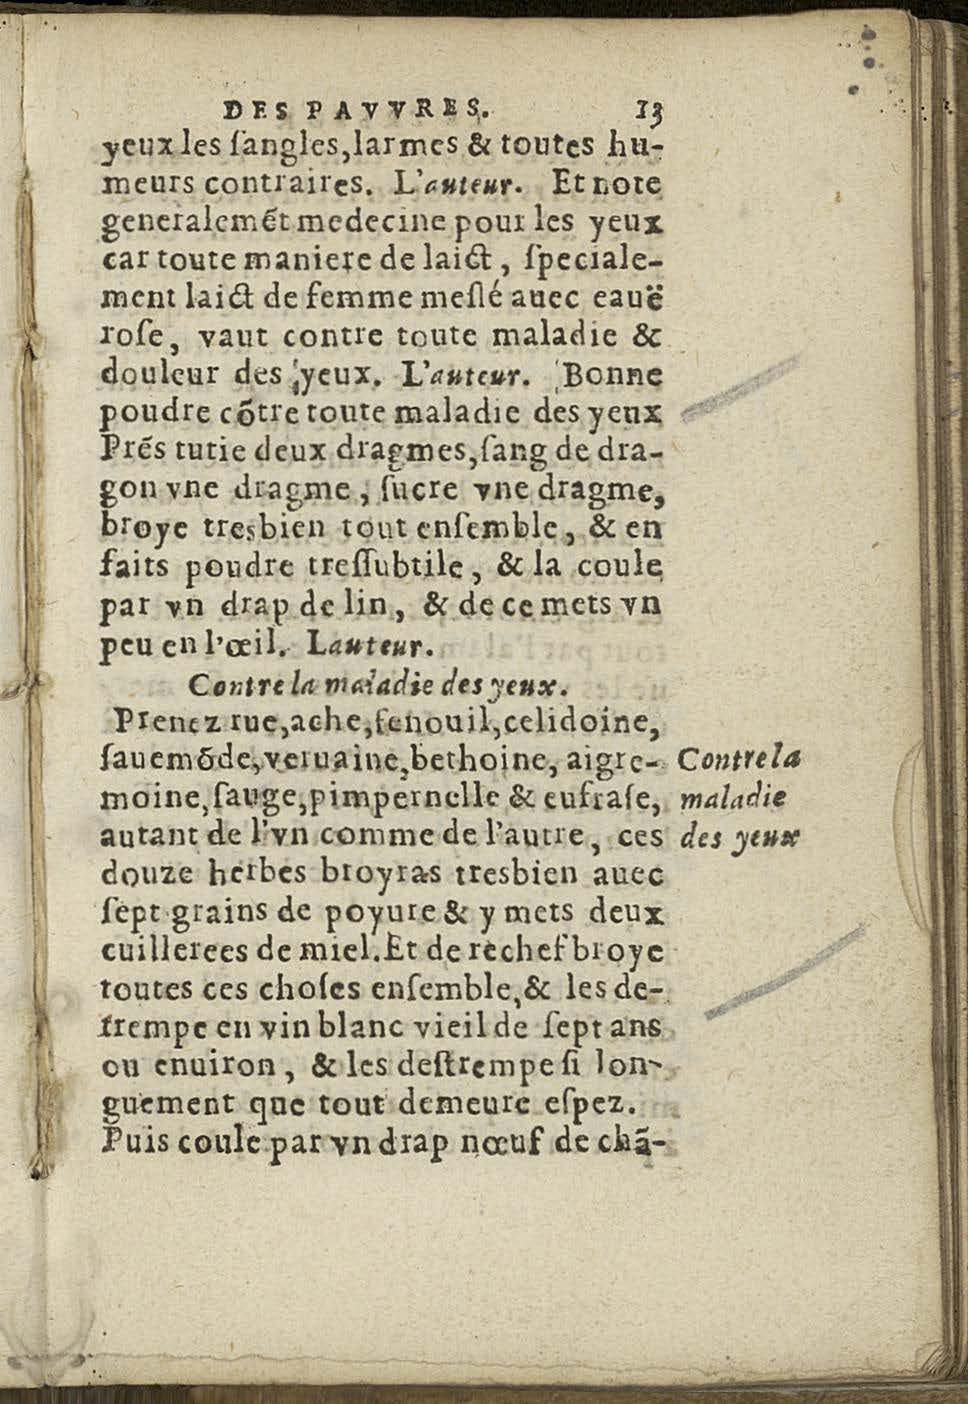 DES PAVVRES. 13
yeux les ſangles, larmes & toutes hu-
meurs contraires. L'auteur. Et note
generalemẽt medecine pour les yeux
car toute maniere de laict, ſpeciale-
ment laict de femme meſlé auec eauë
roſe, vaut contre toute maladie &
douleur des yeux. L'auteur. Bonne
poudre cõtre toute maladie des yeux
Prẽs tutie deux dragmes, ſang de dra-
gon vne dragme, ſucre vne dragme,
broye tresbien tout enſemble, & en
faits poudre treſſubtile, & la coule
par vn drap de lin, & de ce mets vn
peu en l'œil. Lauteur.
Contre la maladie des yeux.
Prenez rue, ache, fenouil, celidoine,
ſauemõde, veruaine, bethoine, aigre-
moine, ſauge, pimpernelle & eufraſe,
autant de l'vn comme de l'autre, ces
douze herbes broyras tresbien auec
ſept grains de poyure & y mets deux
cuillerees de miel. Et de rechef broye
toutes ces choſes enſemble, & les de-
ſtrempe en vin blanc vieil de ſept ans
ou enuiron, & les deſtrempe ſi lon-
guement que tout demeure eſpez.
Puis coule par vn drap nœuf de chã-
Contre la
maladie
des yeux